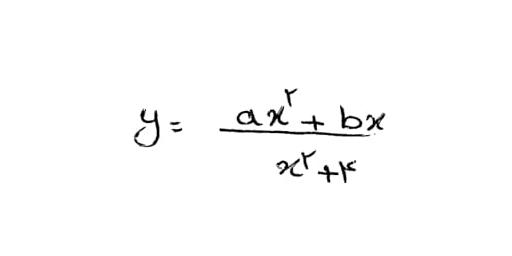 y = (ax^۲ + bx) / (x^۲ + ۴)